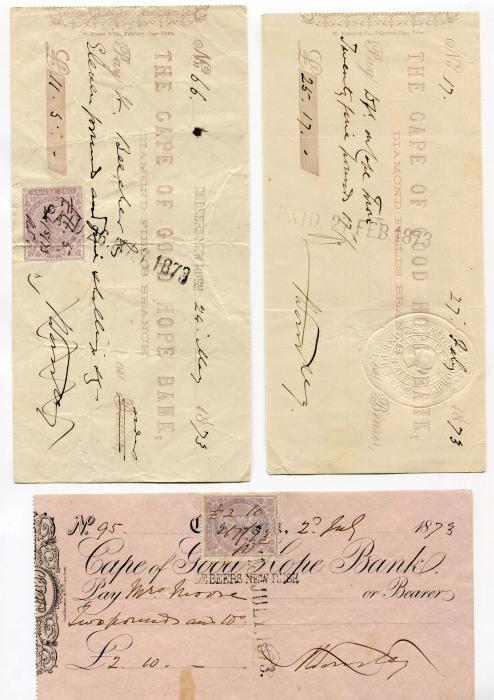 W. Foster & Co., Printers, Cape Town.
No. 66.
THE CAPE OF GOOD HOPE BANK,
DIAMOND FIELDS BRANCH
DEBEERS NEW RUSH 24 May 1873
Pay H. Beecher
or order
Eleven pounds and five shillings
£ 11. 5. -
ONE PENNY
PAID 26 MAY 1873
W. Foster & Co., Printers, Cape Town.
No. 17.
THE CAPE OF GOOD HOPE BANK,
DIAMOND FIELDS BRANCH
27 Feby 1873
Pay
or Bearer
Twenty five pounds 17/-
£ 25. 17. -
PAID 27 FEB. 1873
No. 95. 2d July 1873
Cape of Good Hope Bank
DEBEERS NEW RUSH
Pay Mrs. Moore or Bearer
Two pounds and 10/-
£ 2. 10. -
£2. 10
JULY 1873